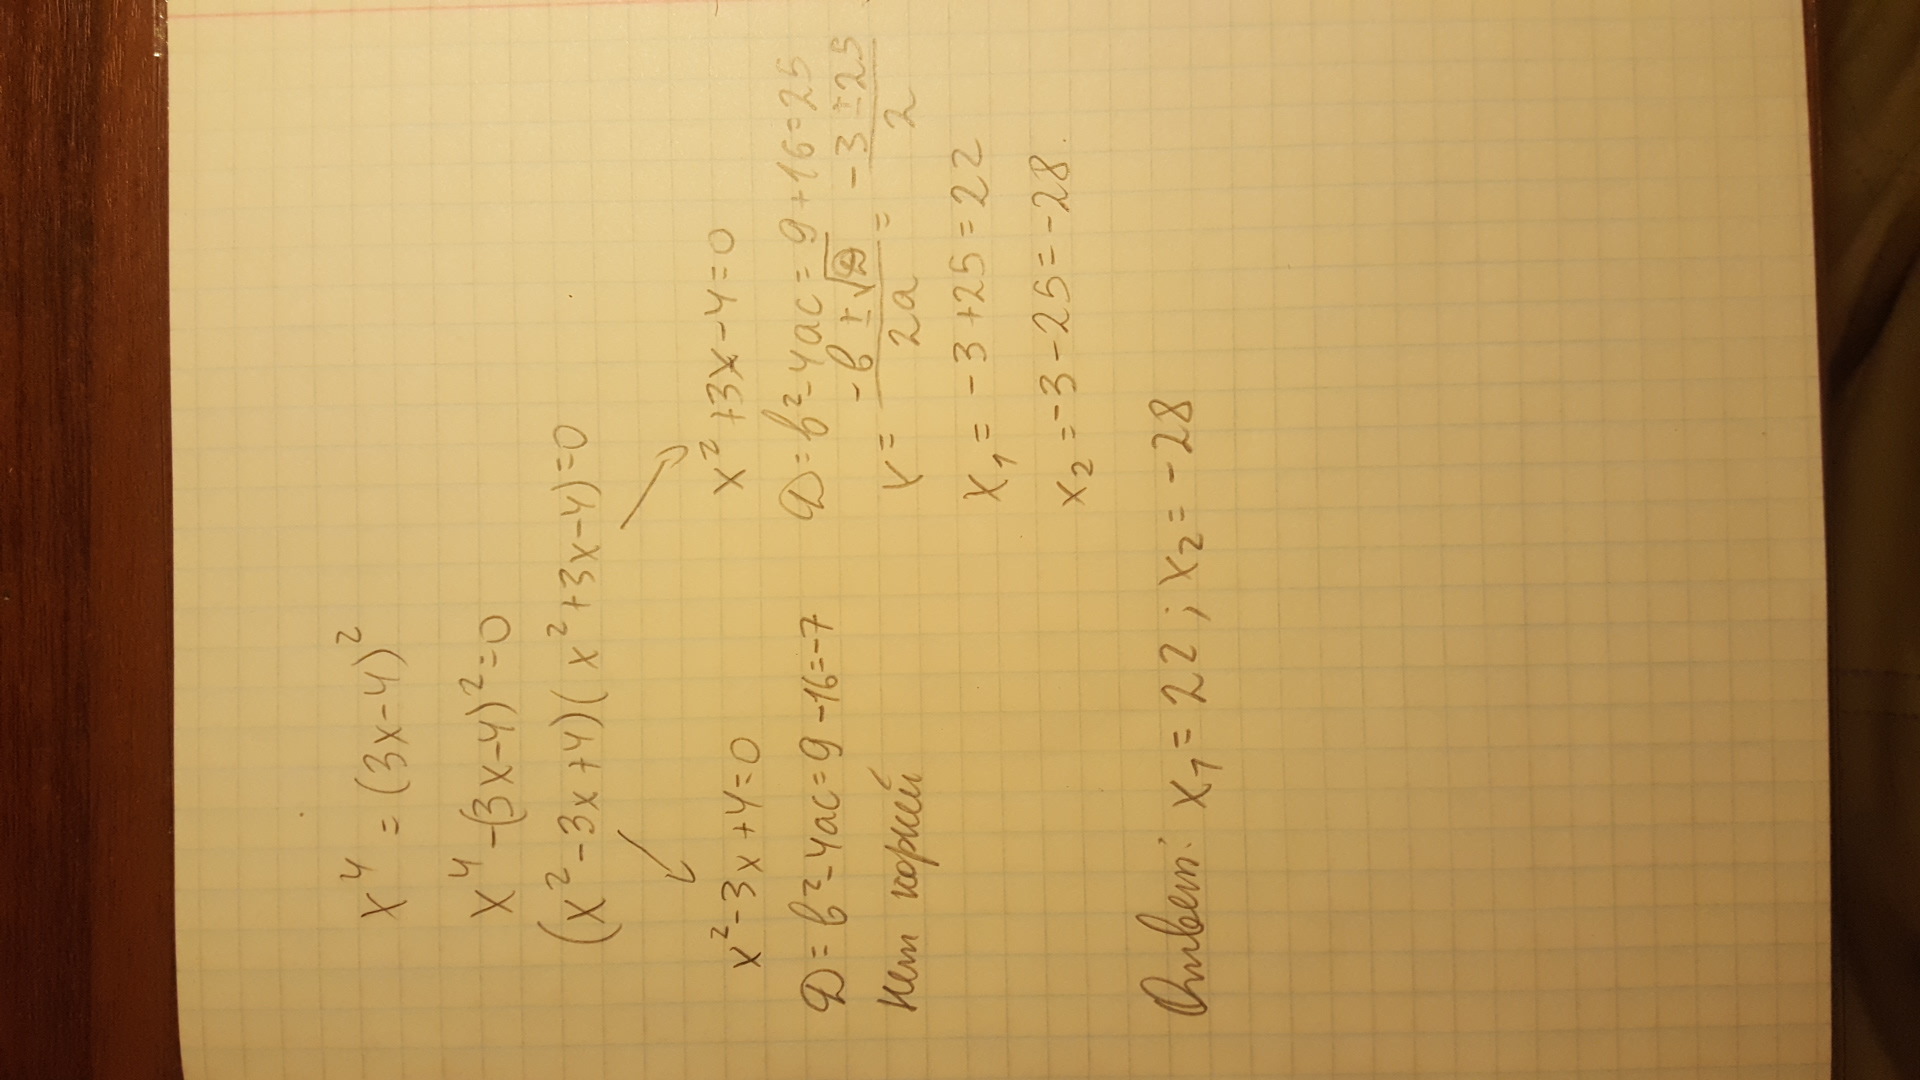 x⁴ = (3x-4)²
x⁴-(3x-4)²=0
(x²-3x+4)(x²+3x-4)=0
x²-3x+4=0
D=b²-4ac=9-16=-7
Нет корней
x²+3x-4=0
D=b²-4ac=9+16=25
x = (-b±√D)/(2a) = (-3±25)/2
x₁= -3+25=22
x₂=-3-25=-28.
Ответ: x₁=22; x₂=-28